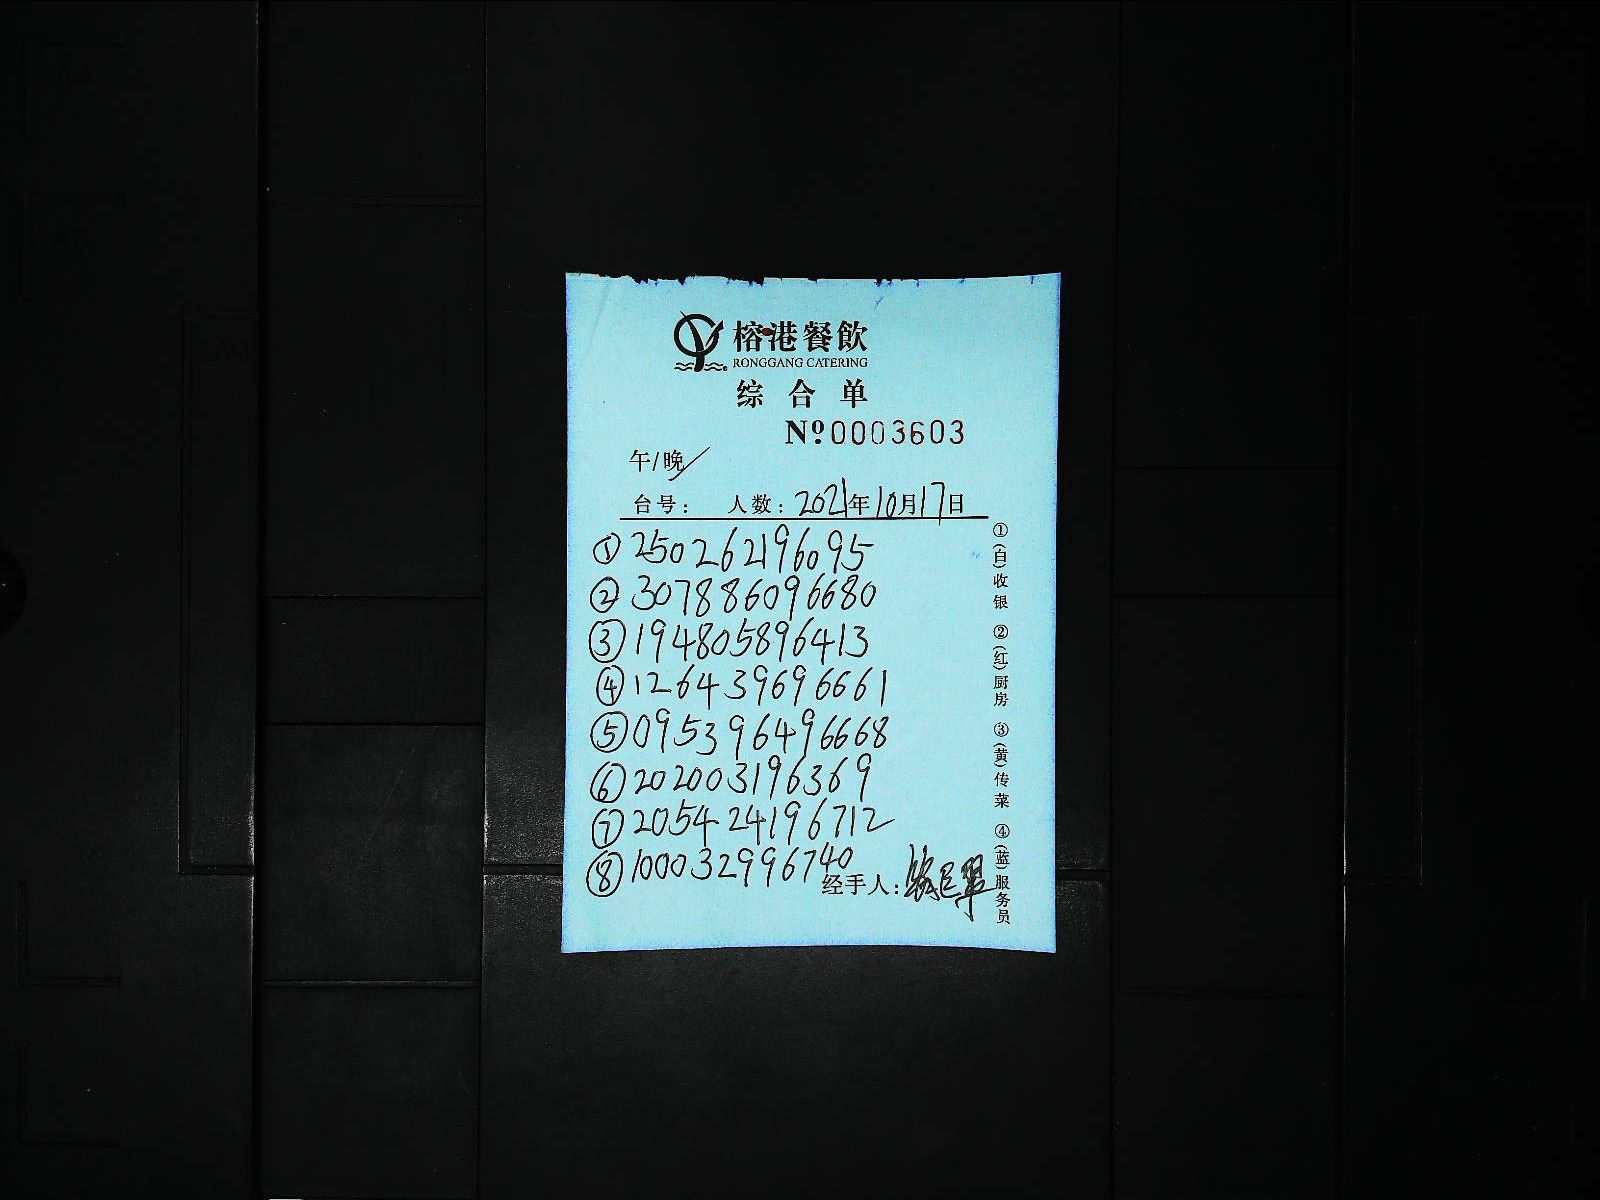 榕港餐飲
RONGGANG CATERING
综合单
Nº0003603
午/晚
台号： 人数：2021年10月17日
①250262196095
②307886096680
③194805896413
④126439696661
⑤095396496668
⑥202003196369
⑦205424196712
⑧100032996740
经手人：
①(白)收银 ②(红)厨房 ③(黄)传菜 ④(蓝)服务员